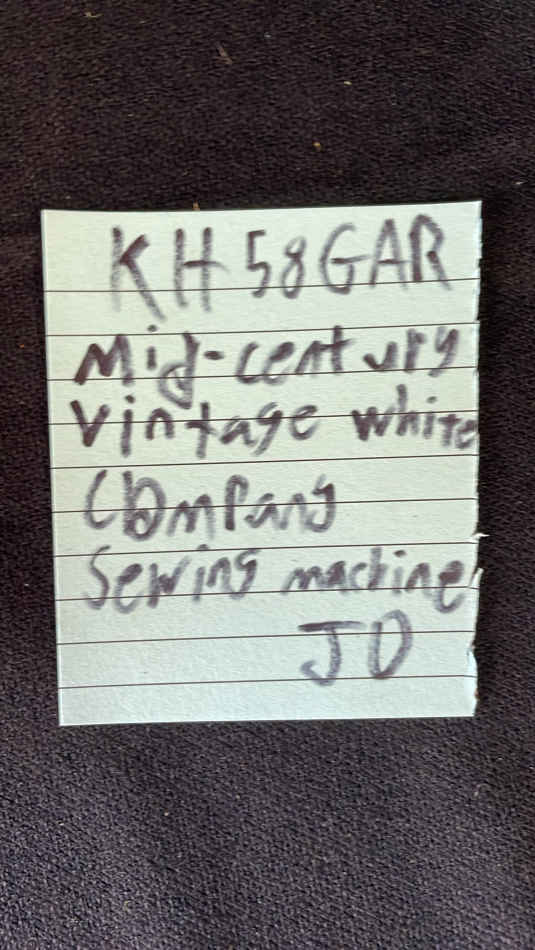 KH58GAR
Mid-century
Vintage white
Company
Sewing machine
JD